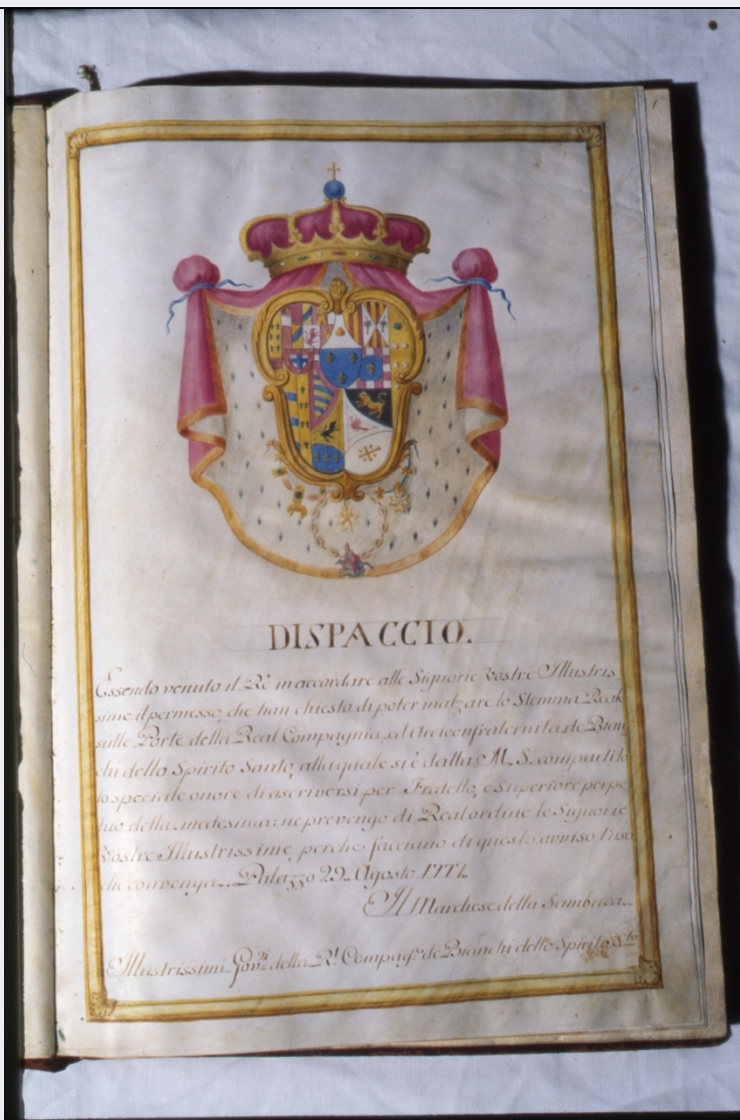 DISPACCIO.
Essendo venuto il Rè in accordare alle Signorie Vostre Illustris
sime il permesso, che han chiesto di poter inalzare lo Stemma Reale
sulle Porte della Real Compagnia, ed Arciconfraternita de Bian
chi dello Spirito Santo, alla quale si è dalla M. S. compartito
lo speciale onore di ascriversi per Fratello, e Superiore perpe
tuo della medesima: ne prevengo di Real ordine le Signorie
Vostre Illustrissime, perche facciano di questo avviso l'uso
che convenga. Palazzo 29. Agosto 1777.
Il Marchese della Sambuca.
Illustrissimi Gov.ri della R.l Compag.a de Bianchi dello Spirito S.to